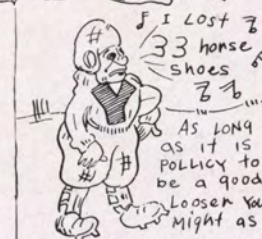 I LOST
33 horse
shoes
AS LONG
as it is
POLLICY to
be a good
Looser You
Might as